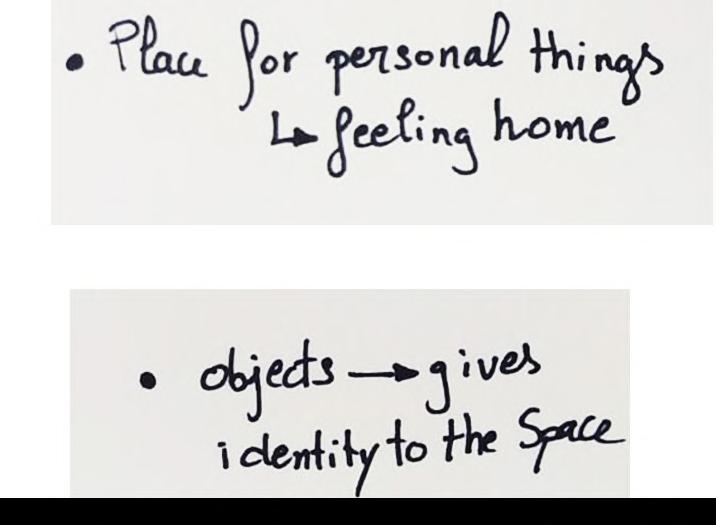 • Place for personal things
↳ feeling home
• objects → gives
identity to the Space